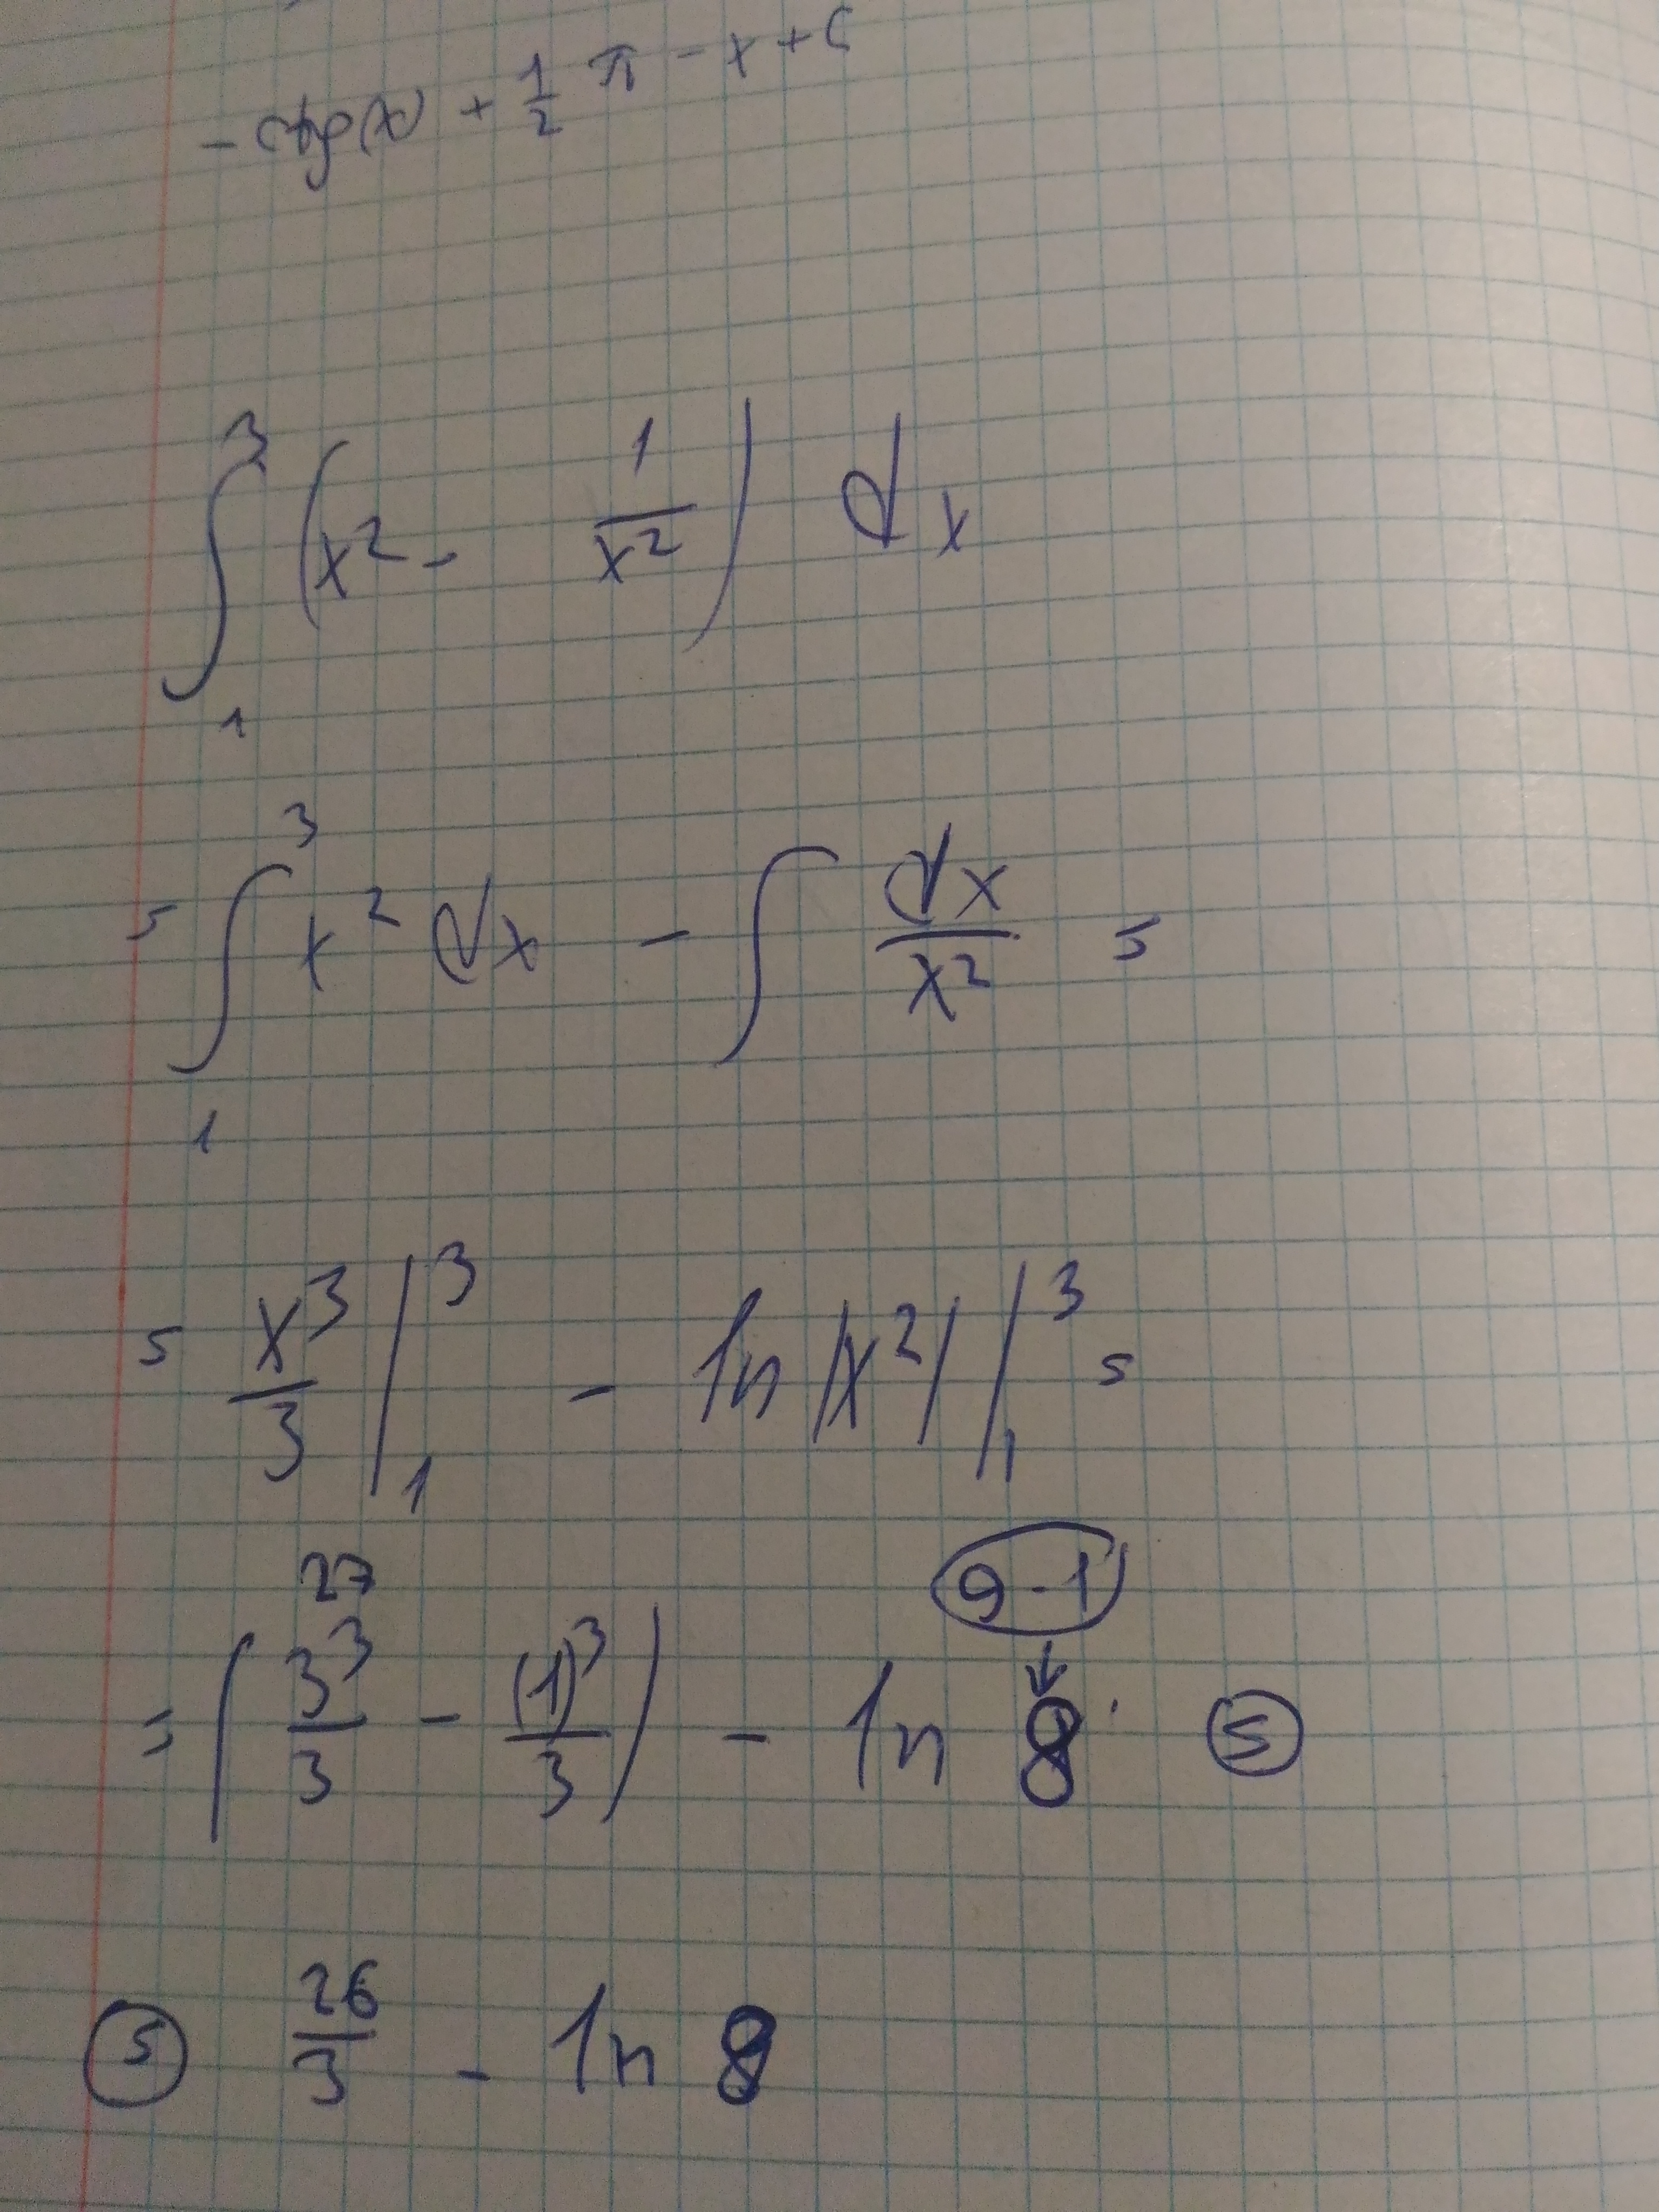 - ctg(x) + 1/2 π - x + C
∫₁³ (x² - 1/x²) dx
= ∫₁³ x² dx - ∫ dx/x² =
= x³/3 |₁³ - ln |x²| |₁³ =
27 9-1
= (3³/3 - (1)³/3) - ln 8 =
= 26/3 - ln 8